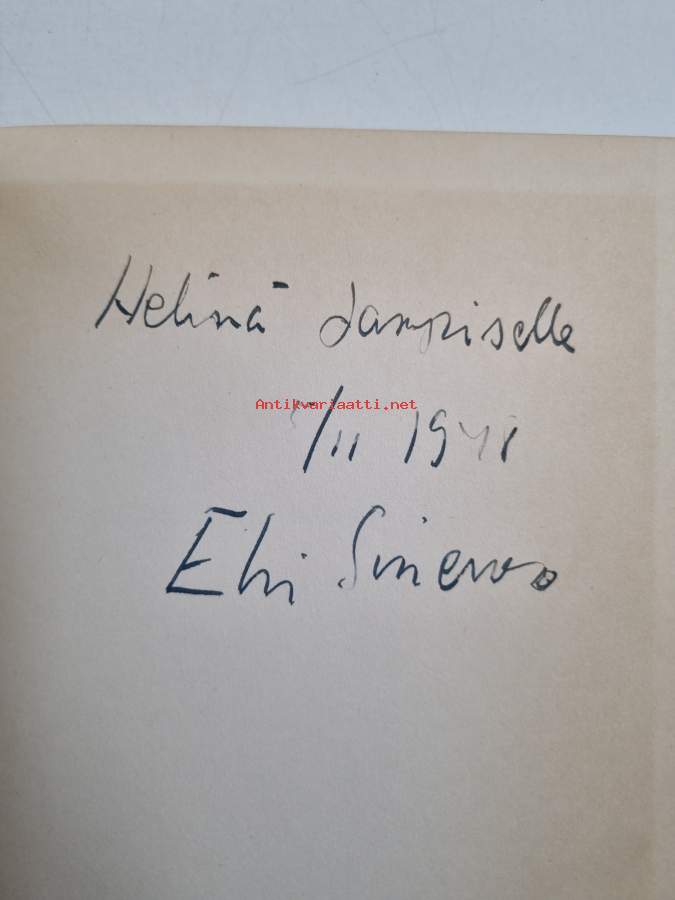 Helinä Lampiselle
Antikvariaatti.net
5/11 1948
Elvi Sinervo